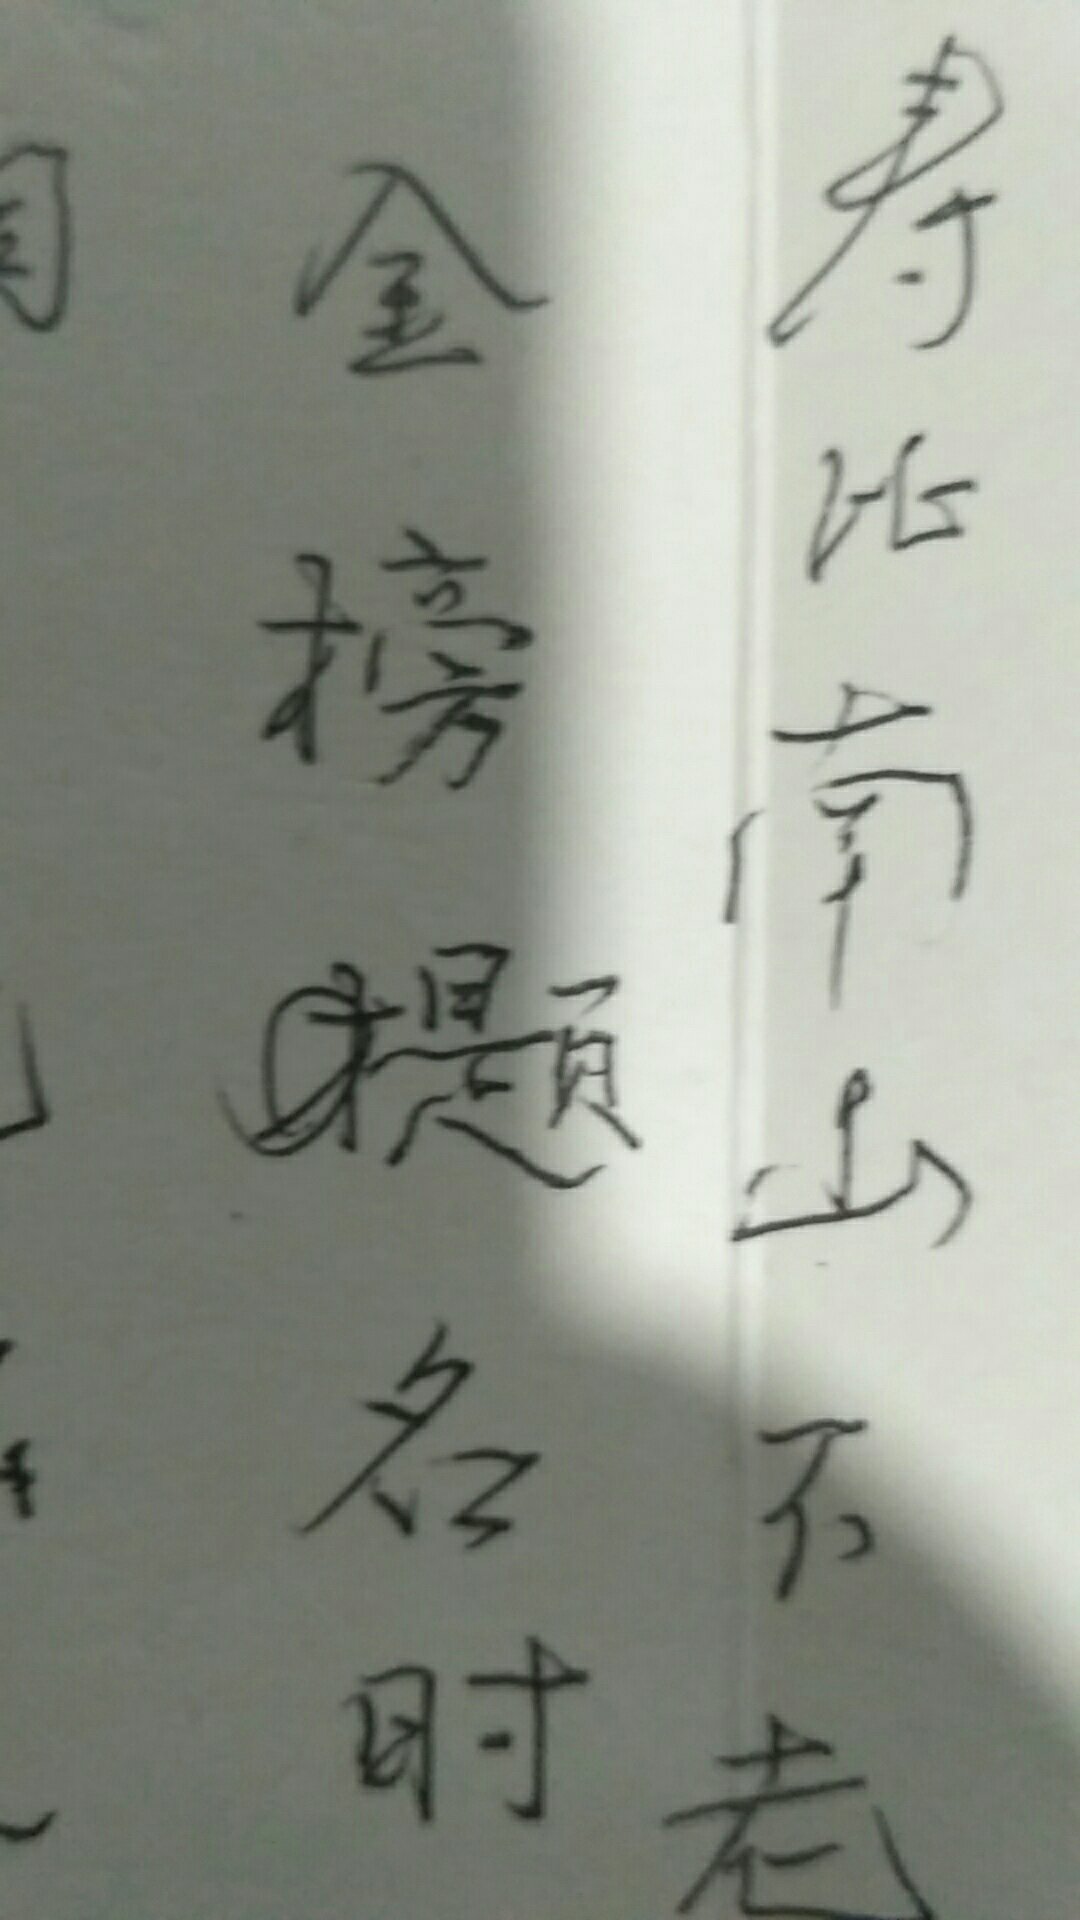 寿比南山不老
金榜题名时